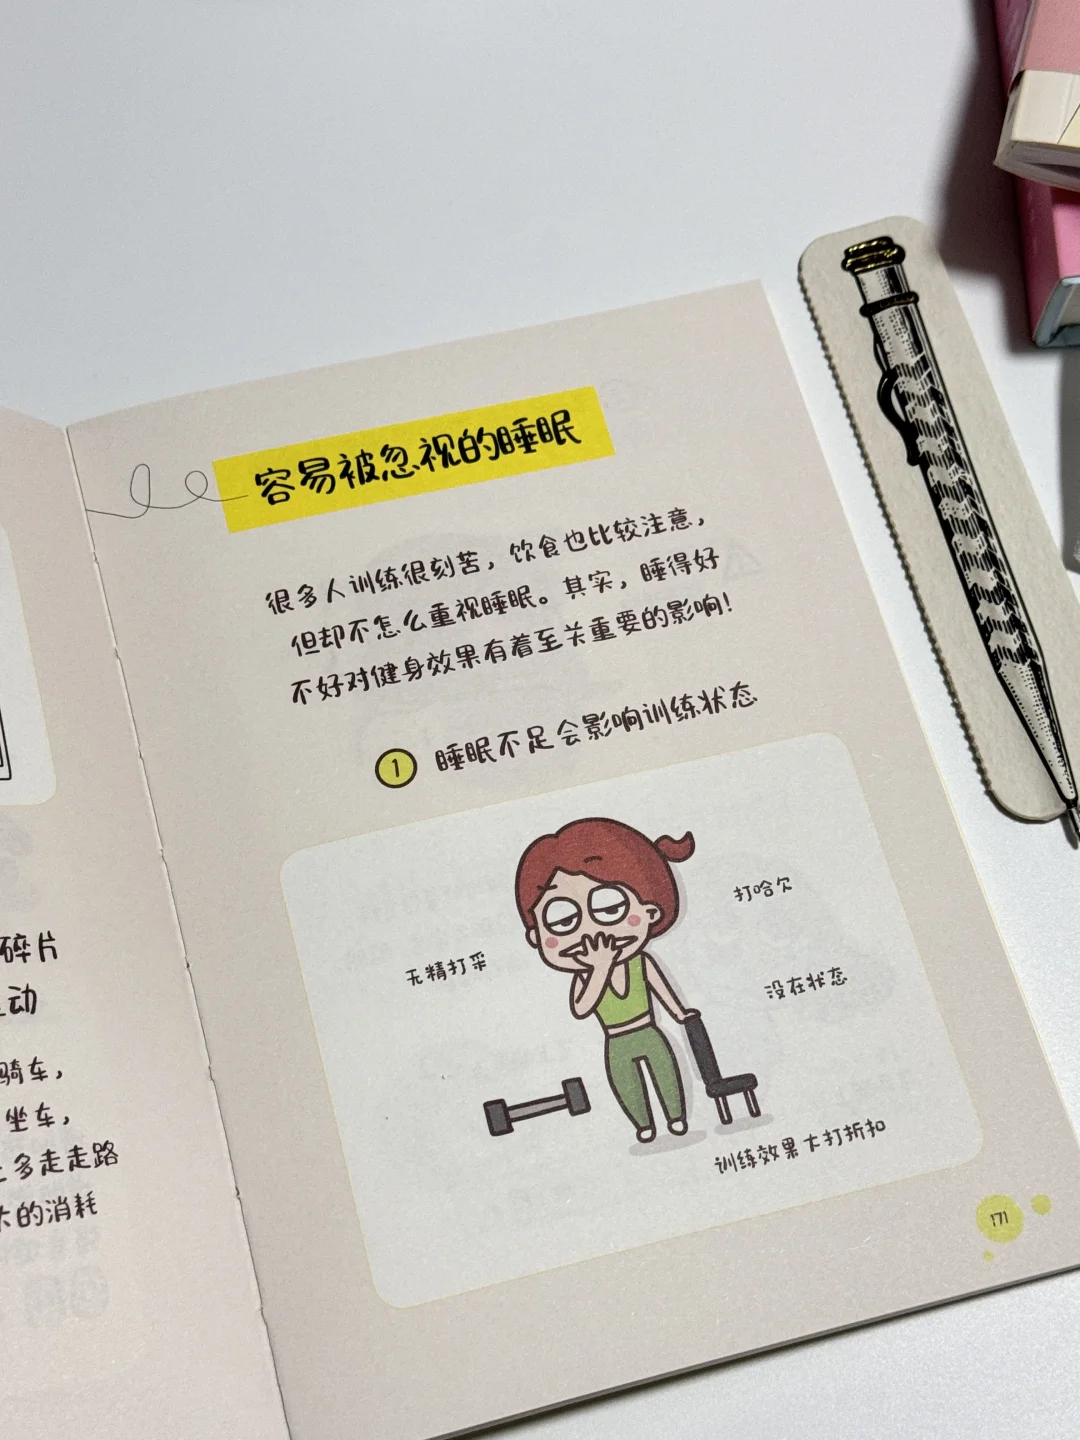 碎片
动
骑车，
坐车，
多走走路
大的消耗
容易被忽视的睡眠
很多人训练很刻苦，饮食也比较注意，
但却不怎么重视睡眠。其实，睡得好
不好对健身效果有着至关重要的影响！
1 睡眠不足会影响训练状态
打哈欠
无精打采
没在状态
训练效果大打折扣
171